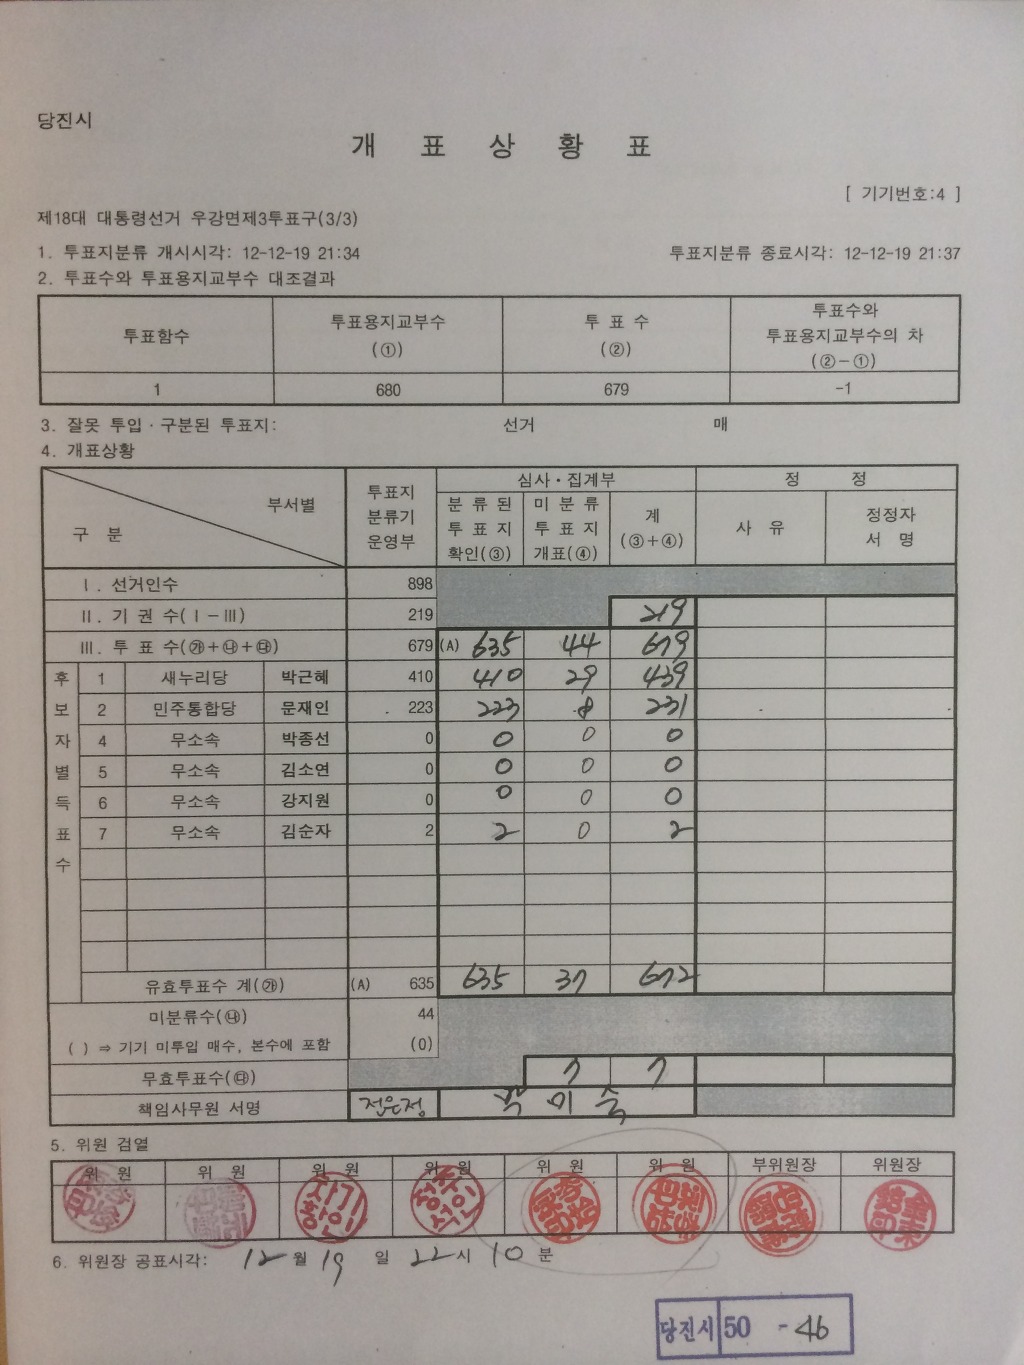 당진시
개 표 상 황 표
[ 기기번호:4 ]
제18대 대통령선거 우강면제3투표구(3/3)
1. 투표지분류 개시시각: 12-12-19 21:34 투표지분류 종료시각: 12-12-19 21:37
2. 투표수와 투표용지교부수 대조결과
투표함수 투표용지교부수 (①) 투 표 수 (②) 투표수와 투표용지교부수의 차 (②-①)
1 680 679 -1
3. 잘못 투입·구분된 투표지: 선거 매
4. 개표상황
구 분 부서별 투표지 분류기 운영부 심사·집계부 정 정
분 류 된 투 표 지 확인(③) 미 분 류 투 표 지 개표(④) 계 (③+④) 사 유 정정자 서 명
Ⅰ. 선거인수 898
Ⅱ. 기 권 수(Ⅰ-Ⅲ) 219 219
Ⅲ. 투 표 수(㉮+㉯+㉰) 679 (A) 635 44 679
후보자별득표수
1 새누리당 박근혜 410 410 29 439
2 민주통합당 문재인 223 223 8 231
4 무소속 박종선 0 0 0 0
5 무소속 김소연 0 0 0 0
6 무소속 강지원 0 0 0 0
7 무소속 김순자 2 2 0 2
유효투표수 계(㉮) (A) 635 635 37 672
미분류수(㉯) 44
( ) ⇒ 기기 미투입 매수, 본수에 포함 (0)
무효투표수(㉰) 7 7
책임사무원 서명 전은정
5. 위원 검열
위 원 위 원 위 원 위 원 위 원 위 원 부위원장 위원장
6. 위원장 공표시각: 12월 19일 22시 10분
당진시 50 - 46